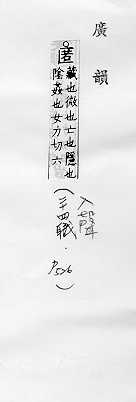 廣韻
匿
藏也微也亡也隱也
除姦也女力切六
入聲
(二十四職．P526)